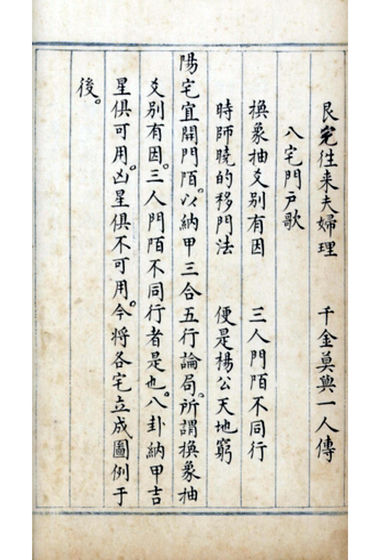 艮兌往来夫婦理　千金莫與一人傳
八宅門戸歌
換象抽爻别有因　三人門陌不同行
時師曉的移門法　便是楊公天地窮
陽宅宜開門陌。以納甲三合五行論局。所謂換象抽
爻别有因。三人門陌不同行者是也。八卦納甲吉
星俱可用。凶星俱不可用。今将各宅立成圖例于
後。